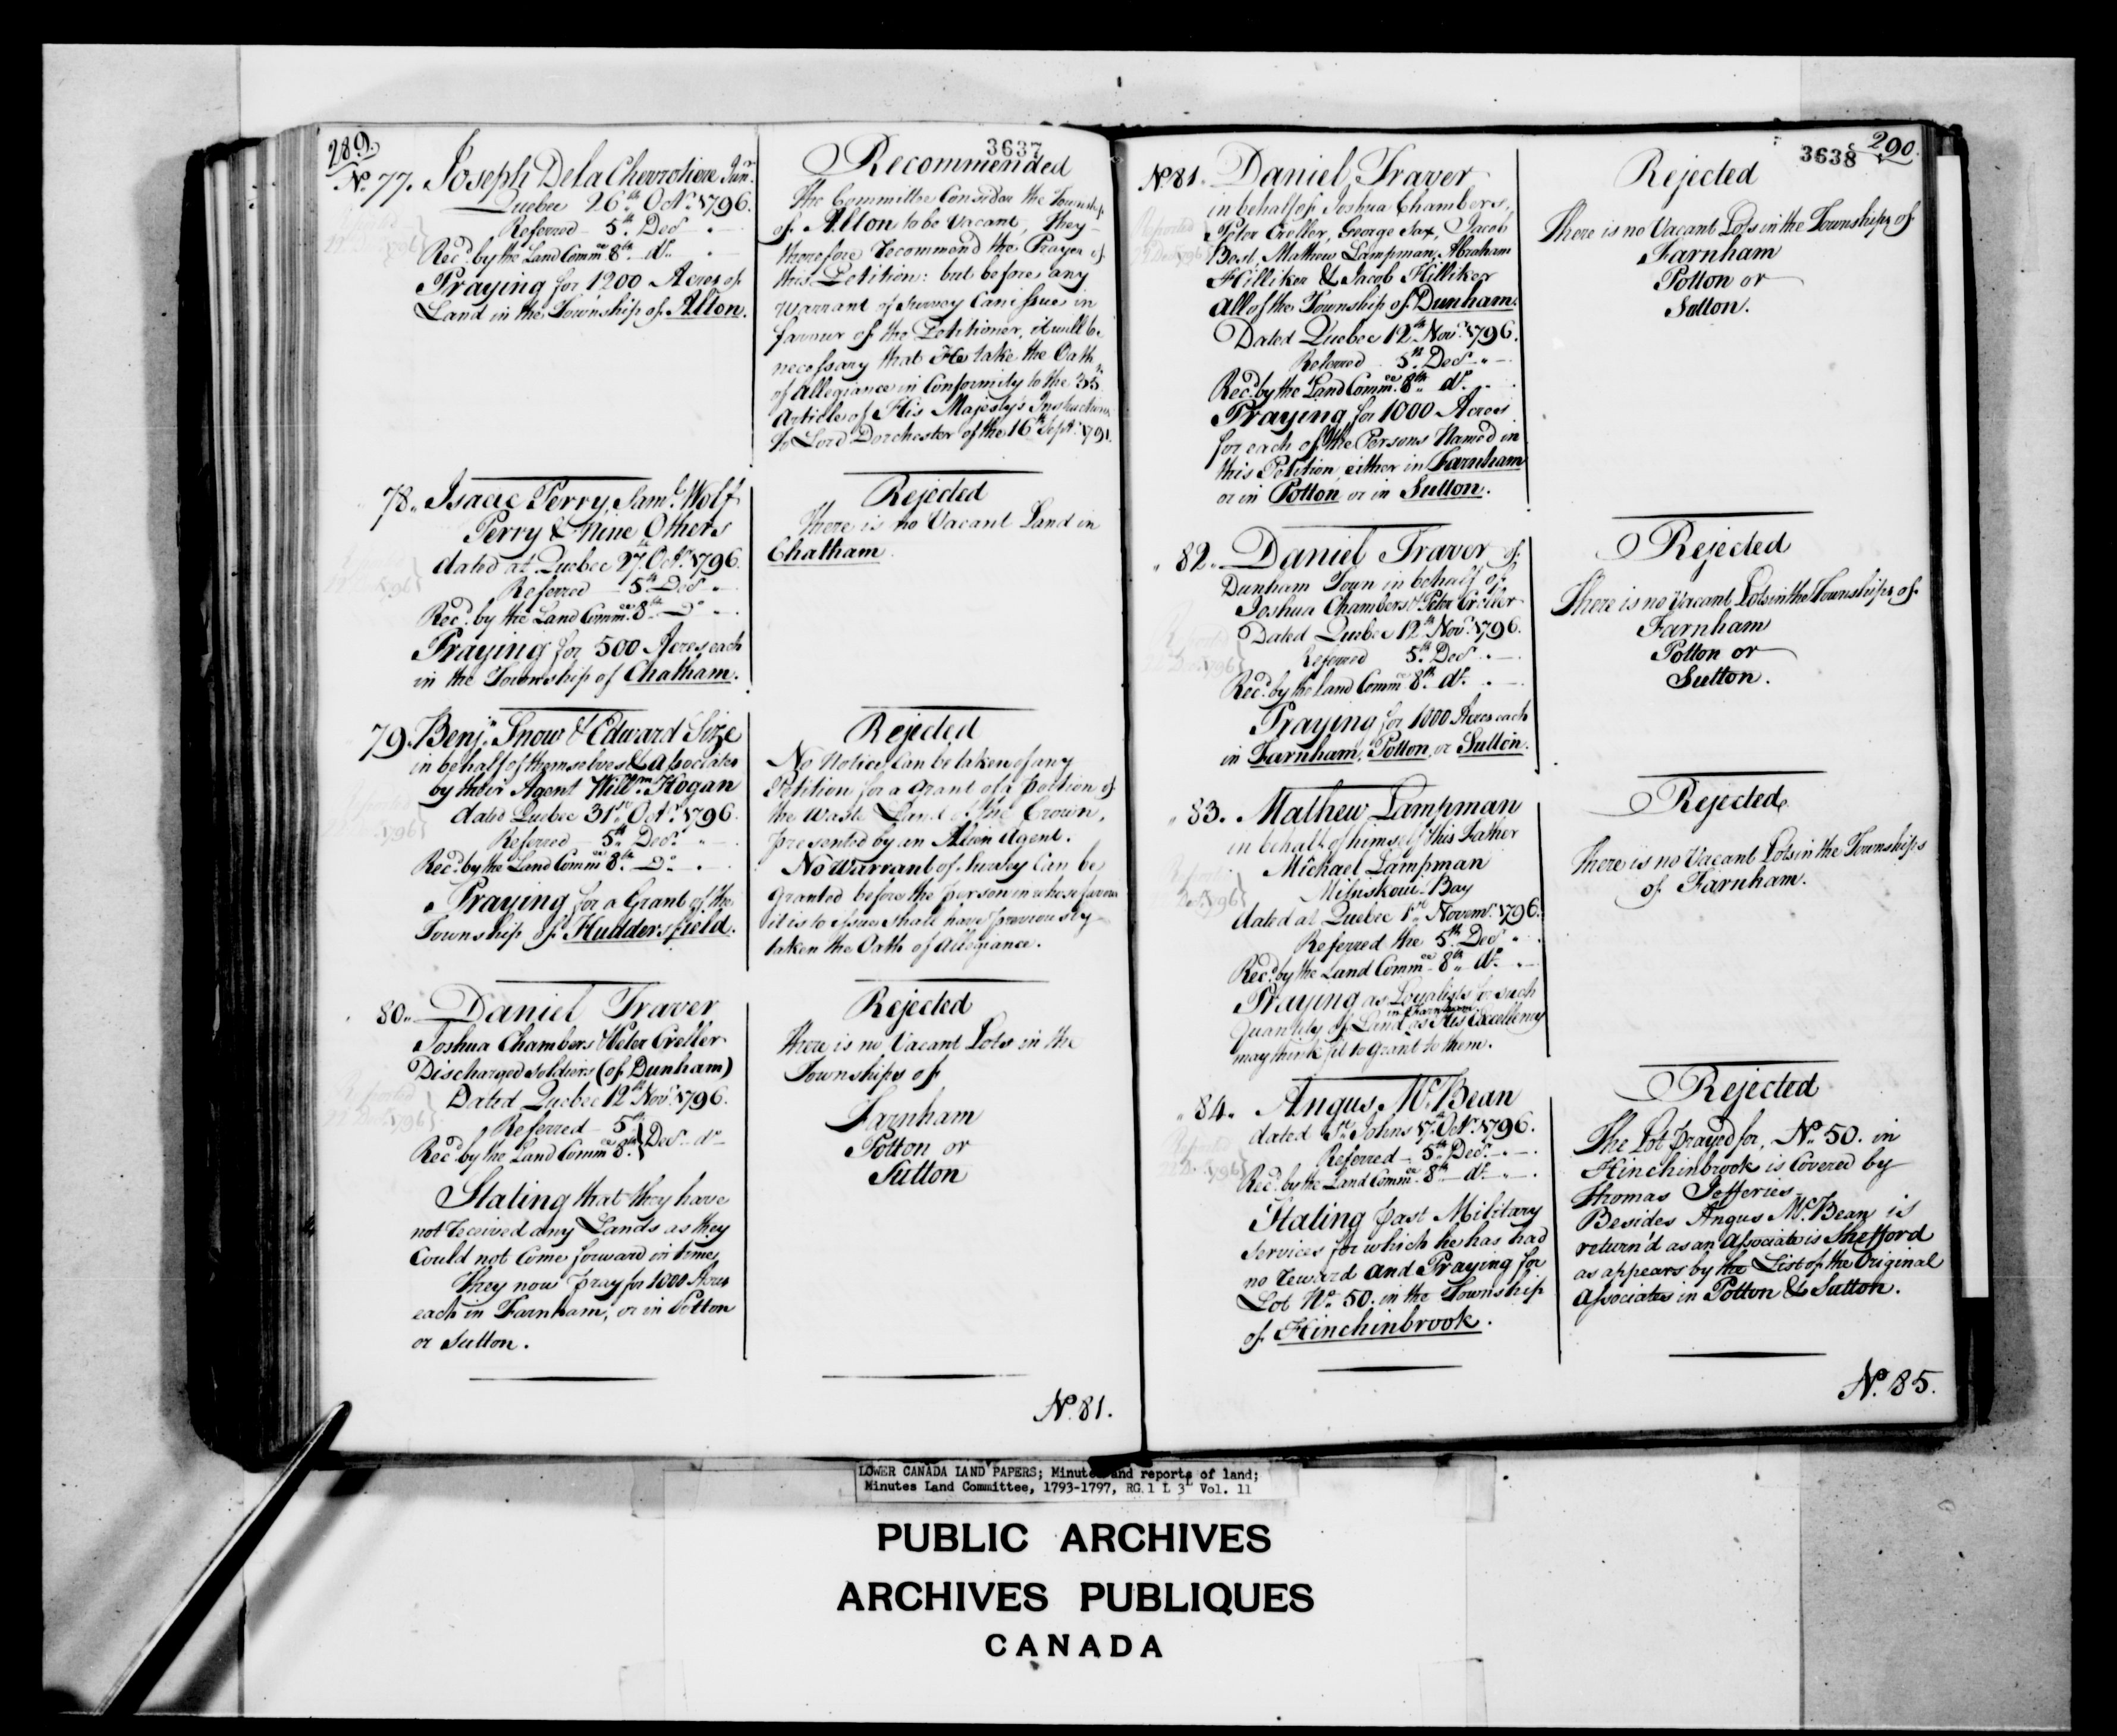 289.
3637
No. 77. Joseph De la Chevrotiere Junr.
Quebec 26th Octr. 1796.
Referred 5th Decr
Recd. by the Land Commee. 8th do.
Praying for 1200 Acres of
Land in the Township of Alton.
Recommended
The Committee Consider the Township
of Alton to be Vacant, they
therefore recommend the Prayer of
this Petition: but before any
Warrant of Survey Can issue in
favour of the Petitioner, it will be
necessary that He take the Oath
of allegiance in Conformity to the 35th
Article of His Majesty's Instructions
to Lord Dorchester of the 16th Septr. 1791.
78. Isaac Perry, Saml. Wolf
Perry & Nine Others
dated at Quebec 27th Octr. 1796.
Referred 5th Decr
Recd. by the Land Commee. 8th Do
Praying for 500 Acres each
in the Township of Chatham.
Rejected
There is no Vacant Land in
Chatham.
79. Benjn. Snow & Edward Size
in behalf of themselves & associates
by their Agent Willm. Hogan
dated Quebec 31st Octr. 1796.
Referred 5th Decr.
Recd. by the Land Commee 8th Do
Praying for a Grant of the
Township of Huddersfield.
Rejected
No Notice Can be taken of any
Petition for a grant of a portion of
the Waste Land of the Crown,
presented by an Alien Agent.
No Warrant of Survey Can be
Granted before the person in whose favour
it is to issue shall have previously
taken the Oath of allegiance.
80. Daniel Traver
Joshua Chambers & Peter Creller
Discharged soldiers (of Dunham)
Dated Quebec 12th Novr. 1796.
Referred 5th
Recd. by the Land Commee 8th } Decr do
Stating that they have
not received any Lands as they
Could not Come forward in time,
They now pray for 1000 Acres
each in Farnham, or in Potton
or Sutton.
Rejected
There is no Vacant Lots in the
Townships of
Farnham
Potton or
Sutton
No. 81.
290.
3638
No 81. Daniel Traver
in behalf of Joshua Chambers,
Peter Creller, George Sax, Jacob
Best, Mathew Lampman, Abraham
Hilliker & Jacob Hilliker
all of the Township of Dunham.
Dated Quebec 12th Novr. 1796.
Referred 5th Decr
Recd. by the Land Commee. 8th do.
Praying for 1000 Acres
for each of the Persons Named in
this Petition, either in Farnham
or in Potton or in Sutton.
Rejected
There is no Vacant Lots in the Townships of
Farnham
Potton or
Sutton.
82. Daniel Traver of
Dunham Town in behalf of
Joshua Chambers & Peter Creller
Dated Quebec 12th Novr. 1796.
Referred 5th Decr
Recd. by the Land Commee 8th do.
Praying for 1000 Acres each
in Farnham, Potton, or Sutton.
Rejected
There is no Vacant Lots in the Townships of
Farnham
Potton or
Sutton.
83. Mathew Lampman
in behalf of himself & his Father
Michael Lampman
Misiskoui Bay
dated at Quebec 1st Novemr. 1796.
Referred the 5th Decr
Recd. by the Land Commee 8th do.
Praying as Loyalists for such
in Farnham
Quantity of Land as His Excellency
may think fit to grant to them.
Rejected
There is no Vacant Lots in the Townships
of Farnham.
84. Angus McBean
dated St. Johns 7th Octr. 1796.
Referred 5th Decr.
Recd. by the Land Commee. 8th do.
Stating past Military
services for which he has had
no reward and Praying for
Lot No. 50. in the Township
of Hinchinbrook.
Rejected
The Lot prayed for, No. 50. in
Hinchinbrook is Covered by
Thomas Jefferies.
Besides Angus McBean is
return'd as an associate is Shefford
as appears by the List of the Original
associates in Potton & Sutton.
No. 85.
LOWER CANADA LAND PAPERS; Minutes and reports of land;
Minutes Land Committee, 1793-1797, RG 1 L 3L Vol. 11
PUBLIC ARCHIVES
ARCHIVES PUBLIQUES
CANADA